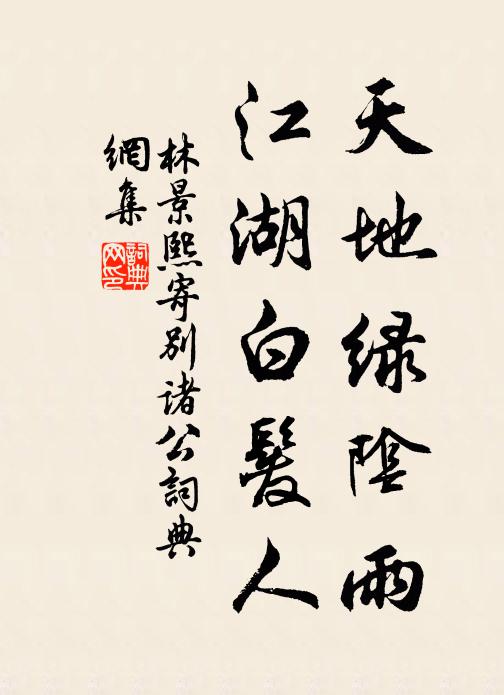 天地緑陰雨
江湖白髮人
林景熙寄别諸公詞典
網集
詞典网印